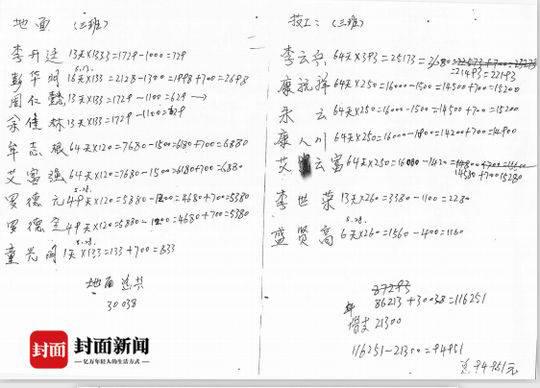 地面 (三班)
李升廷 13天X133=1729-1000=729
彭华明 16天X133=2128-1300=1998+700=2698
周仁 13天X133=1729-1100=629
余佳林 13天X133=1729-1100=629
牟志根 64天X120=7680-1500=6180+700=6880
艾富强 64天X120=7680-1500=6180+700=6880
罗德元 49天X120=5880-1200=4680+700=5380
罗德全 49天X120=5880-1200=4680+700=5380
童光明 1天X133=133+700=833
地面总共
30038
技工: (三班)
李云 64天X393=25173
=21493=22193
康祝祥 64天X250=16000-1500=14500+700=15200
永云 64天X250=16000-1500=14500+700=15200
康人川 64天X250=16000-1800=14200+700=14900
艾云富 64天X250=16000-1420=
14580+700=15280
李世荣 13天X260=3380-1100=2280
盛贤高 6天X260=1560-400=1160
87293
86213+30038=116251
借支 21300
116251-21300=94951
总94951元
封面 封面新闻
亿万年轻人的生活方式